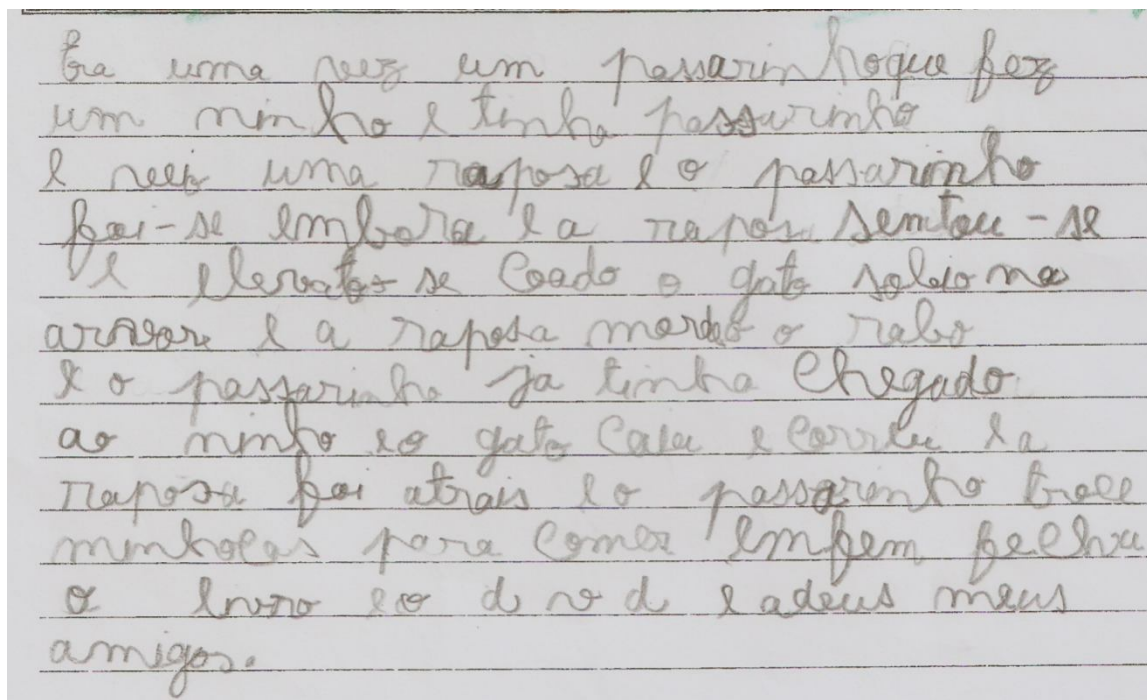 Era uma vez um passarinho que fez
um ninho e tinha passarinho
e veio uma raposa e o passarinho
foi-se embora e a rapos sentou-se
e o gato
e a raposa o rabo
e o passarinho ja tinha chegado
ao ninho e o gato caiu e correu e a
raposa foi atrais e o passarinho
minhocas para comer
o livro e o d v d e adeus meus
amigos.